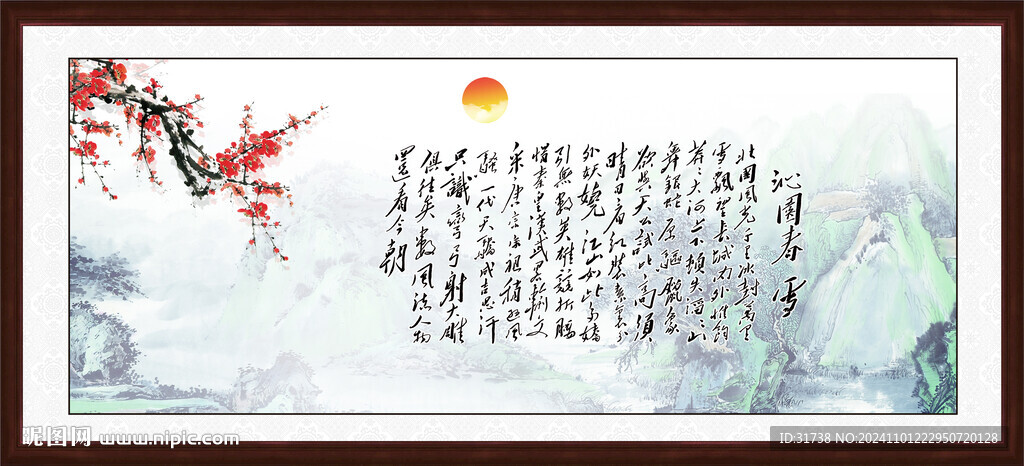 沁園春 雪
北國風光千里冰封萬里
雪飄望長城內外惟餘
莽〻大河上下頓失滔〻山
舞銀蛇原驅臘象
欲與天公試比高須
晴日看紅裝素裹分
外妖嬈江山如此多嬌
引無數英雄競折腰
惜秦皇漢武略輸文
采唐宗宋祖稍遜風
騷一代天驕成吉思汗
只識彎弓射大雕
俱往矣數風流人物
還看今朝
昵图网 www.nipic.com
ID:31738 NO:20241101222950720128